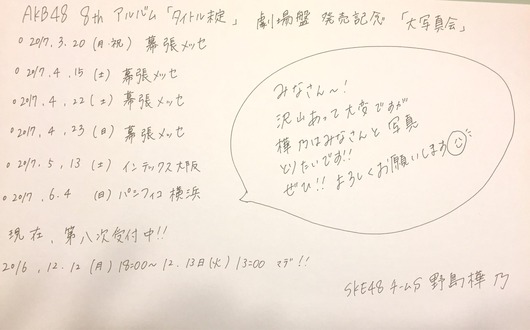 AKB48 8th アルバム「タイトル未定」 劇場盤 発売記念 「大写真会」
○ 2017.3.20 (月・祝) 幕張メッセ
○ 2017.4.15 (土) 幕張メッセ
○ 2017.4.22 (土) 幕張メッセ
○ 2017.4.23 (日) 幕張メッセ
○ 2017.5.13 (土) インテックス大阪
○ 2017.6.4 (日) パシフィコ横浜
現在、第八次受付中!!
2016.12.12 (月) 18:00〜12.13日(火) 13:00 マデ!!
みなさん〜!
沢山あって大変ですが
樺乃はみなさんと写真
とりたいです!!
ぜひ!! よろしくお願いします
SKE48 チームS 野島樺乃